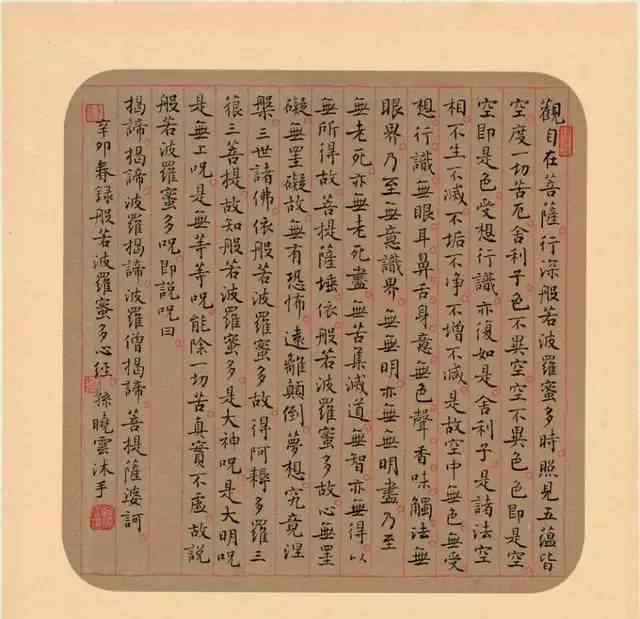 觀自在菩薩行深般若波羅蜜多時照見五蘊皆
空度一切苦厄舍利子色不異空空不異色色即是空
空即是色受想行識亦復如是舍利子是諸法空
相不生不滅不垢不净不增不減是故空中無色無受
想行識無眼耳鼻舌身意無色聲香味觸法無
眼界乃至無意識界無無明亦無無明盡乃至
無老死亦無老死盡無苦集滅道無智亦無得以
無所得故菩提薩埵依般若波羅蜜多故心無罣
礙無罣礙故無有恐怖遠離顛倒夢想究竟涅
槃三世諸佛依般若波羅蜜多故得阿耨多羅三
藐三菩提故知般若波羅蜜多是大神咒是大明咒
是無上咒是無等等咒能除一切苦真實不虛故説
般若波羅蜜多咒即説咒曰
揭諦揭諦波羅揭諦波羅僧揭諦菩提薩婆訶
辛卯春録般若波羅蜜多心经孫曉雲沐手